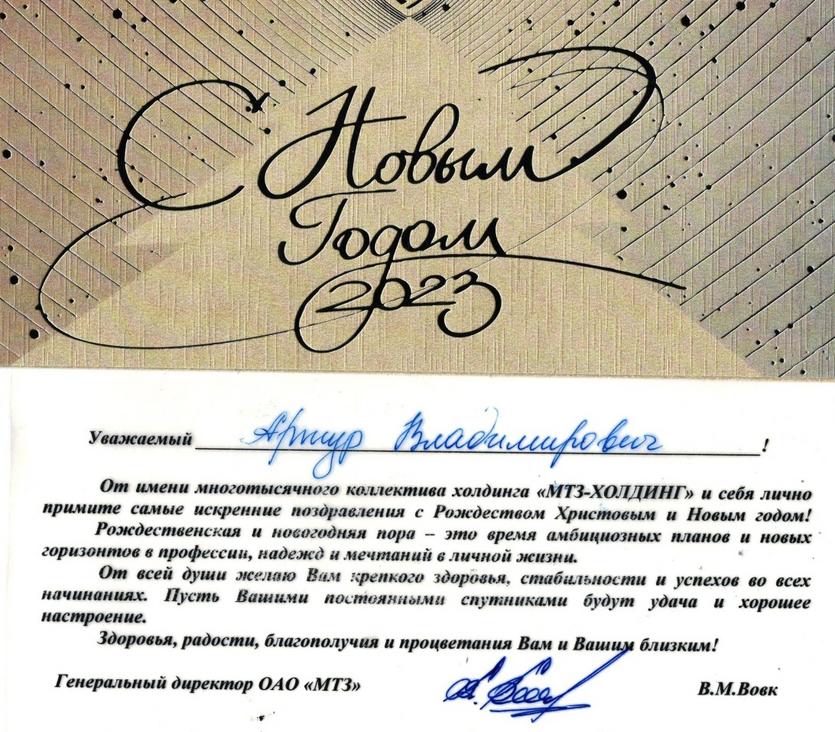 С Новым
Годом
2023
Уважаемый Артур Владимирович!
От имени многотысячного коллектива холдинга «МТЗ-ХОЛДИНГ» и себя лично
примите самые искренние поздравления с Рождеством Христовым и Новым годом!
Рождественская и новогодняя пора – это время амбициозных планов и новых
горизонтов в профессии, надежд и мечтаний в личной жизни.
От всей души желаю Вам крепкого здоровья, стабильности и успехов во всех
начинаниях. Пусть Вашими постоянными спутниками будут удача и хорошее
настроение.
Здоровья, радости, благополучия и процветания Вам и Вашим близким!
Генеральный директор ОАО «МТЗ» В.М.Вовк